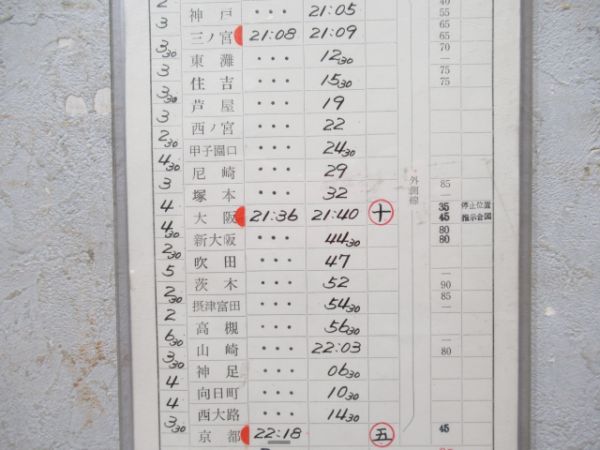 神戸 ・・・ 21:05 55
3 65
三ノ宮 21:08 21:09 65
3 30 70
東灘 ・・・ 12 30 —
3 75
住吉 ・・・ 15 30 75
3 30
芦屋 ・・・ 19
3
西ノ宮 ・・・ 22
2 30
甲子園口 ・・・ 24 30
4 30
尼崎 ・・・ 29 外側線
3 85
塚本 ・・・ 32 —
4 35 停止位置
大阪 21:36 21:40 十 45 指示合図
4 30 80
新大阪 ・・・ 44 30 80
2 30
吹田 ・・・ 47
5 —
茨木 ・・・ 52 90
2 30 85
摂津富田 ・・・ 54 30 —
2
高槻 ・・・ 56 30
6 30 —
山崎 ・・・ 22:03 80
3 30
神足 ・・・ 06 30
4
向日町 ・・・ 10 30
4
西大路 ・・・ 14 30
3 30
京都 22:18 五 45